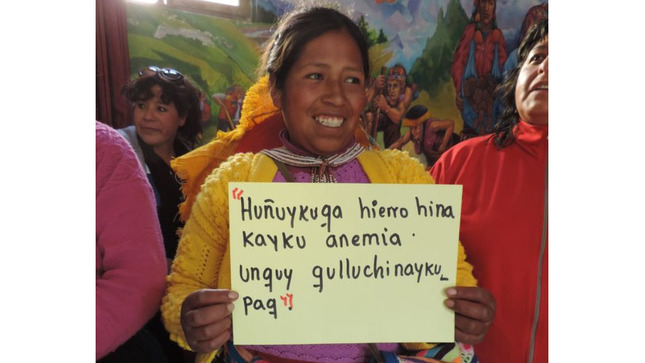 "Huñuykuga hierro hina
kayku anemia.
unguy gulluchinayku_
pag"